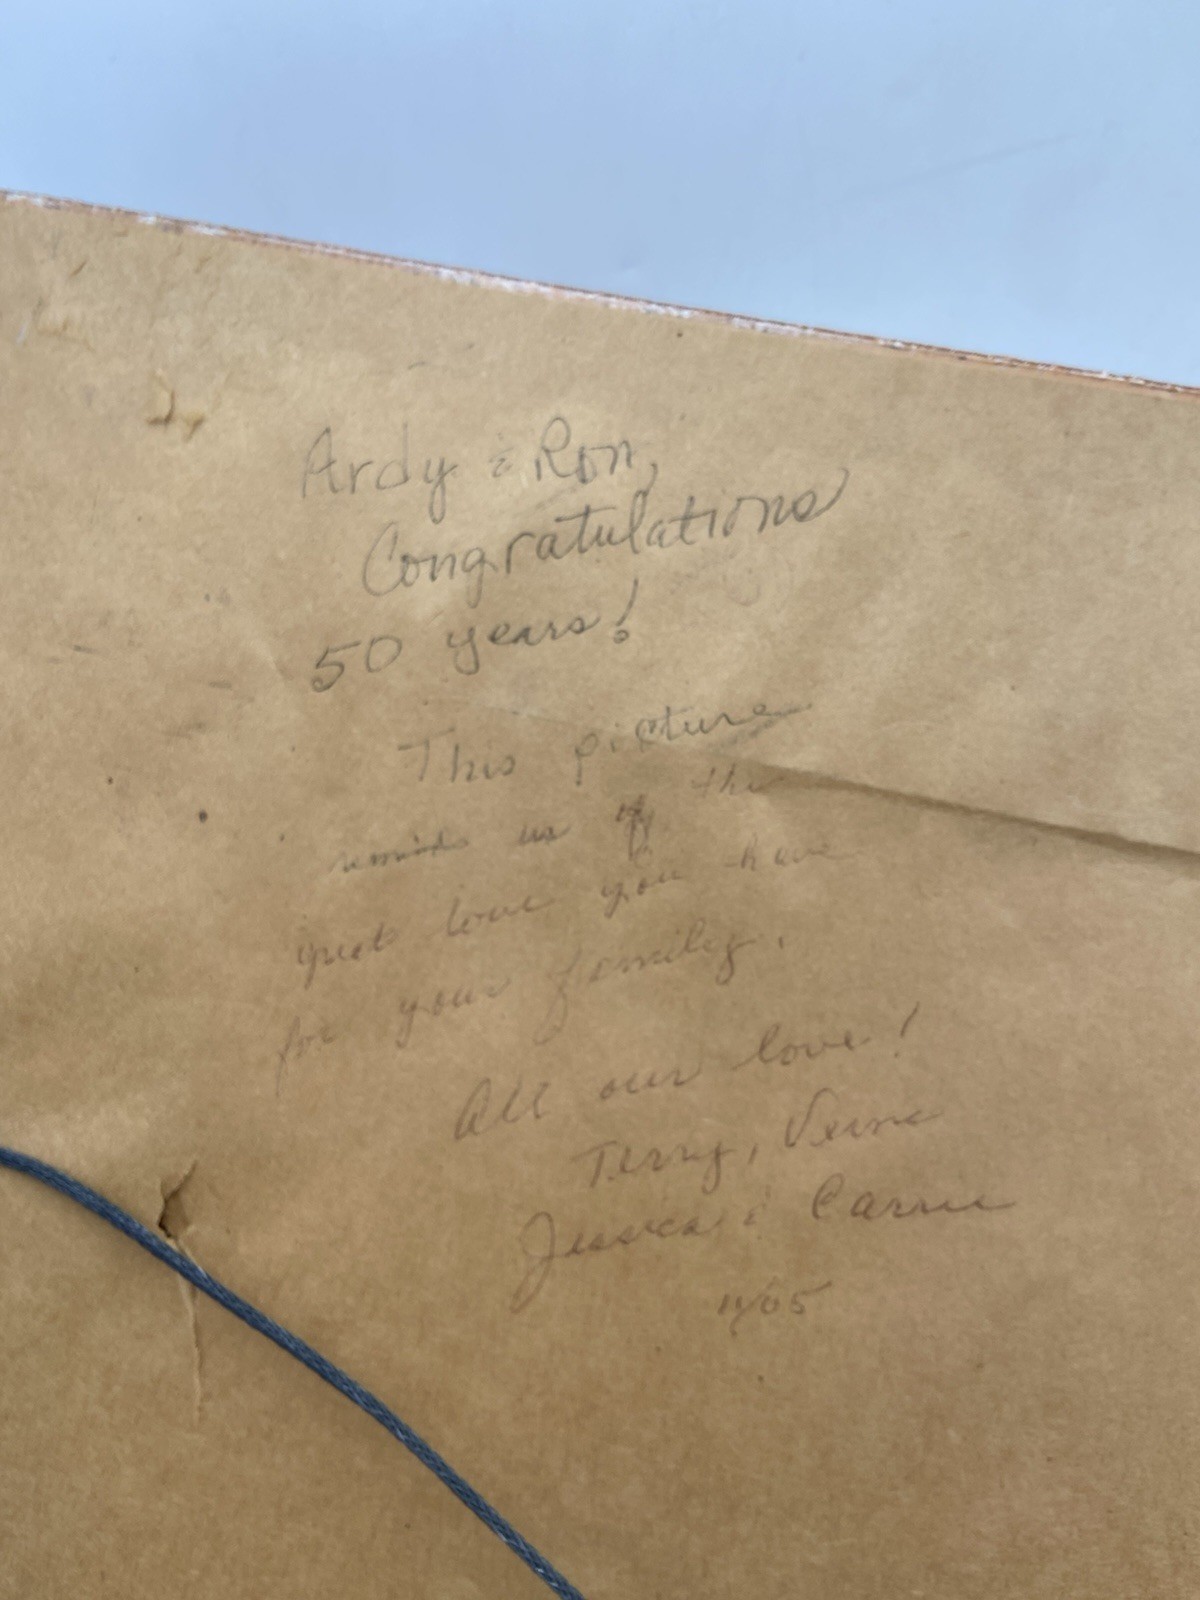 Ardy & Ron,
Congratulations
50 years!
This picture
reminds us of the
great love you have
for your family.
All our love!
Terry, Verne
Jessica & Carrie
11/05